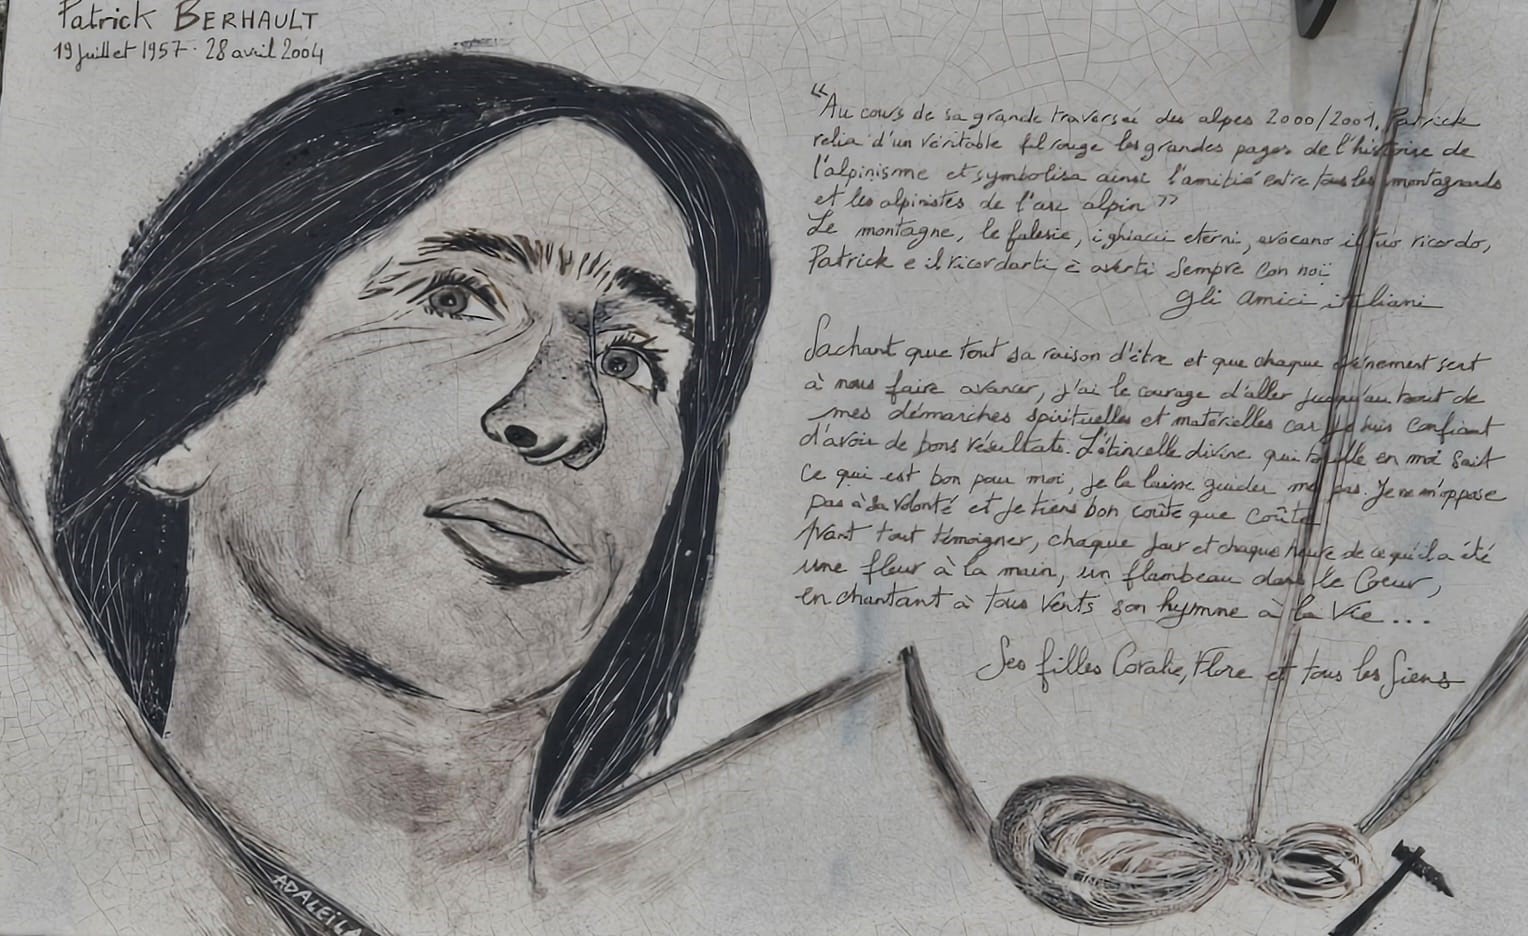 Patrick BERHAULT
19 juillet 1957 - 28 avril 2004
"Au cours de sa grande traversée des alpes 2000/2001, Patrick
relia d'un véritable fil rouge les grandes pages de l'histoire de
l'alpinisme et symbolisa ainsi l'amitié entre tous les montagnards
et les alpinistes de l'arc alpin"
Le montagne, le falesie, i ghiacci eterni, evocano il tuo ricordo,
Patrick e il ricordarti è averti sempre con noi
gli amici italiani
Sachant que tout sa raison d'être et que chaque événement sert
à nous faire avancer, j'ai le courage d'aller jusqu'au bout de
mes démarches spirituelles et matérielles car je suis confiant
d'avoir de bons résultats. L'étincelle divine qui brille en moi sait
ce qui est bon pour moi, je la laisse guider mes pas. Je ne m'oppose
pas à sa volonté et je tiens bon coûte que coûte
Avant tout témoigner, chaque jour et chaque heure de ce qu'il a été
une fleur à la main, un flambeau dans le Coeur,
en chantant à tous vents son hymne à la Vie...
Ses filles Coralie, Flore et tous les Siens
ADALEILA